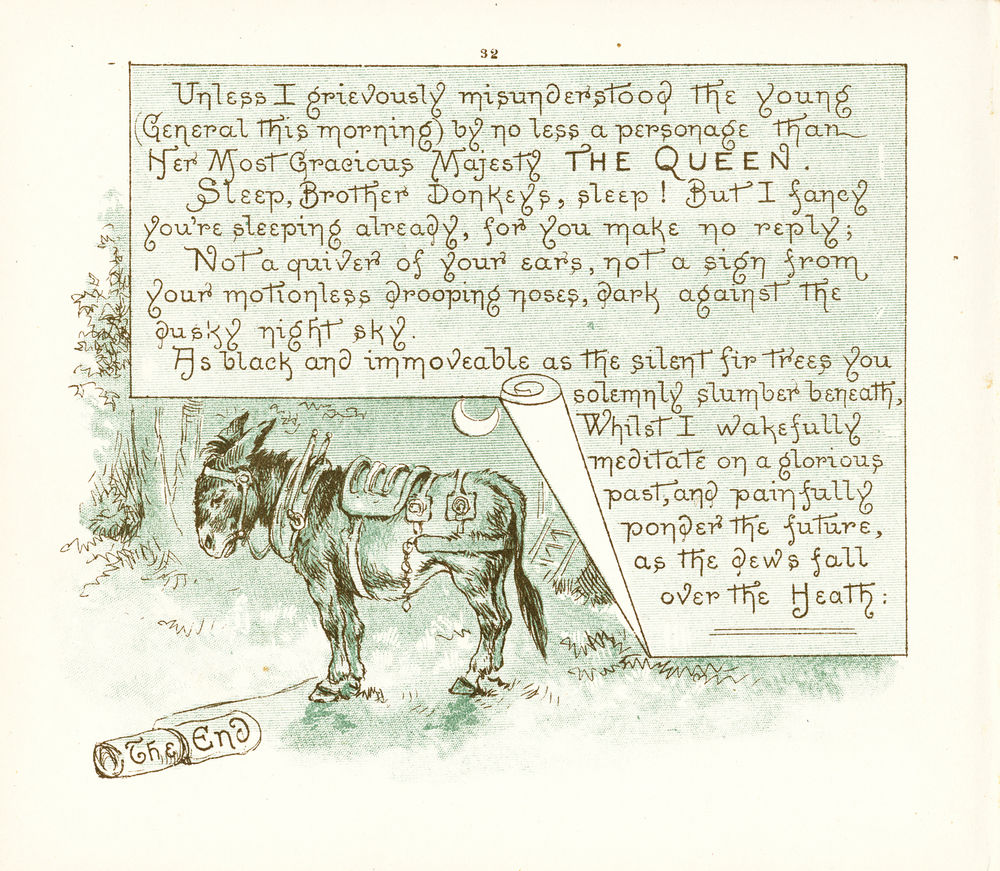 32
Unless I grievously misunderstood the young
(General this morning) by no less a personage than
Her Most Gracious Majesty THE QUEEN.
Sleep, Brother Donkeys, sleep! But I fancy
you're sleeping already, for you make no reply;
Not a quiver of your ears, not a sign from
your motionless drooping noses, dark against the
dusky night sky.
As black and immoveable as the silent fir trees you
solemnly slumber beneath,
Whilst I wakefully
meditate on a glorious
past, and painfully
ponder the future,
as the dews fall
over the Heath:
The End